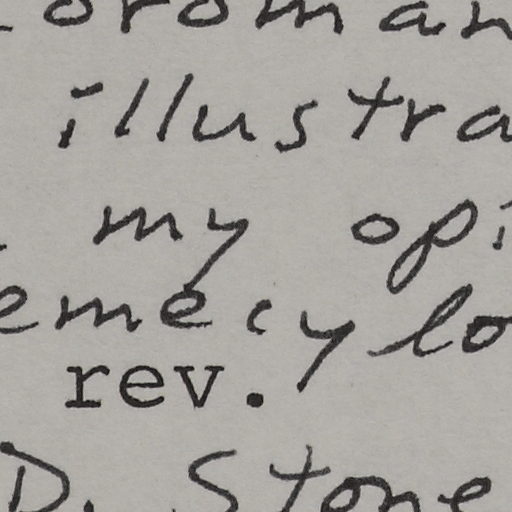 oroman
illustra
my opi
emecylo
rev.
D. Stone